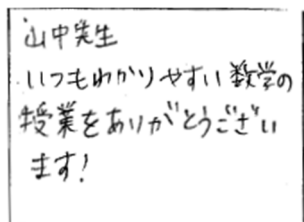 山中先生
いつもわかりやすい数学の
授業をありがとうござい
ます!